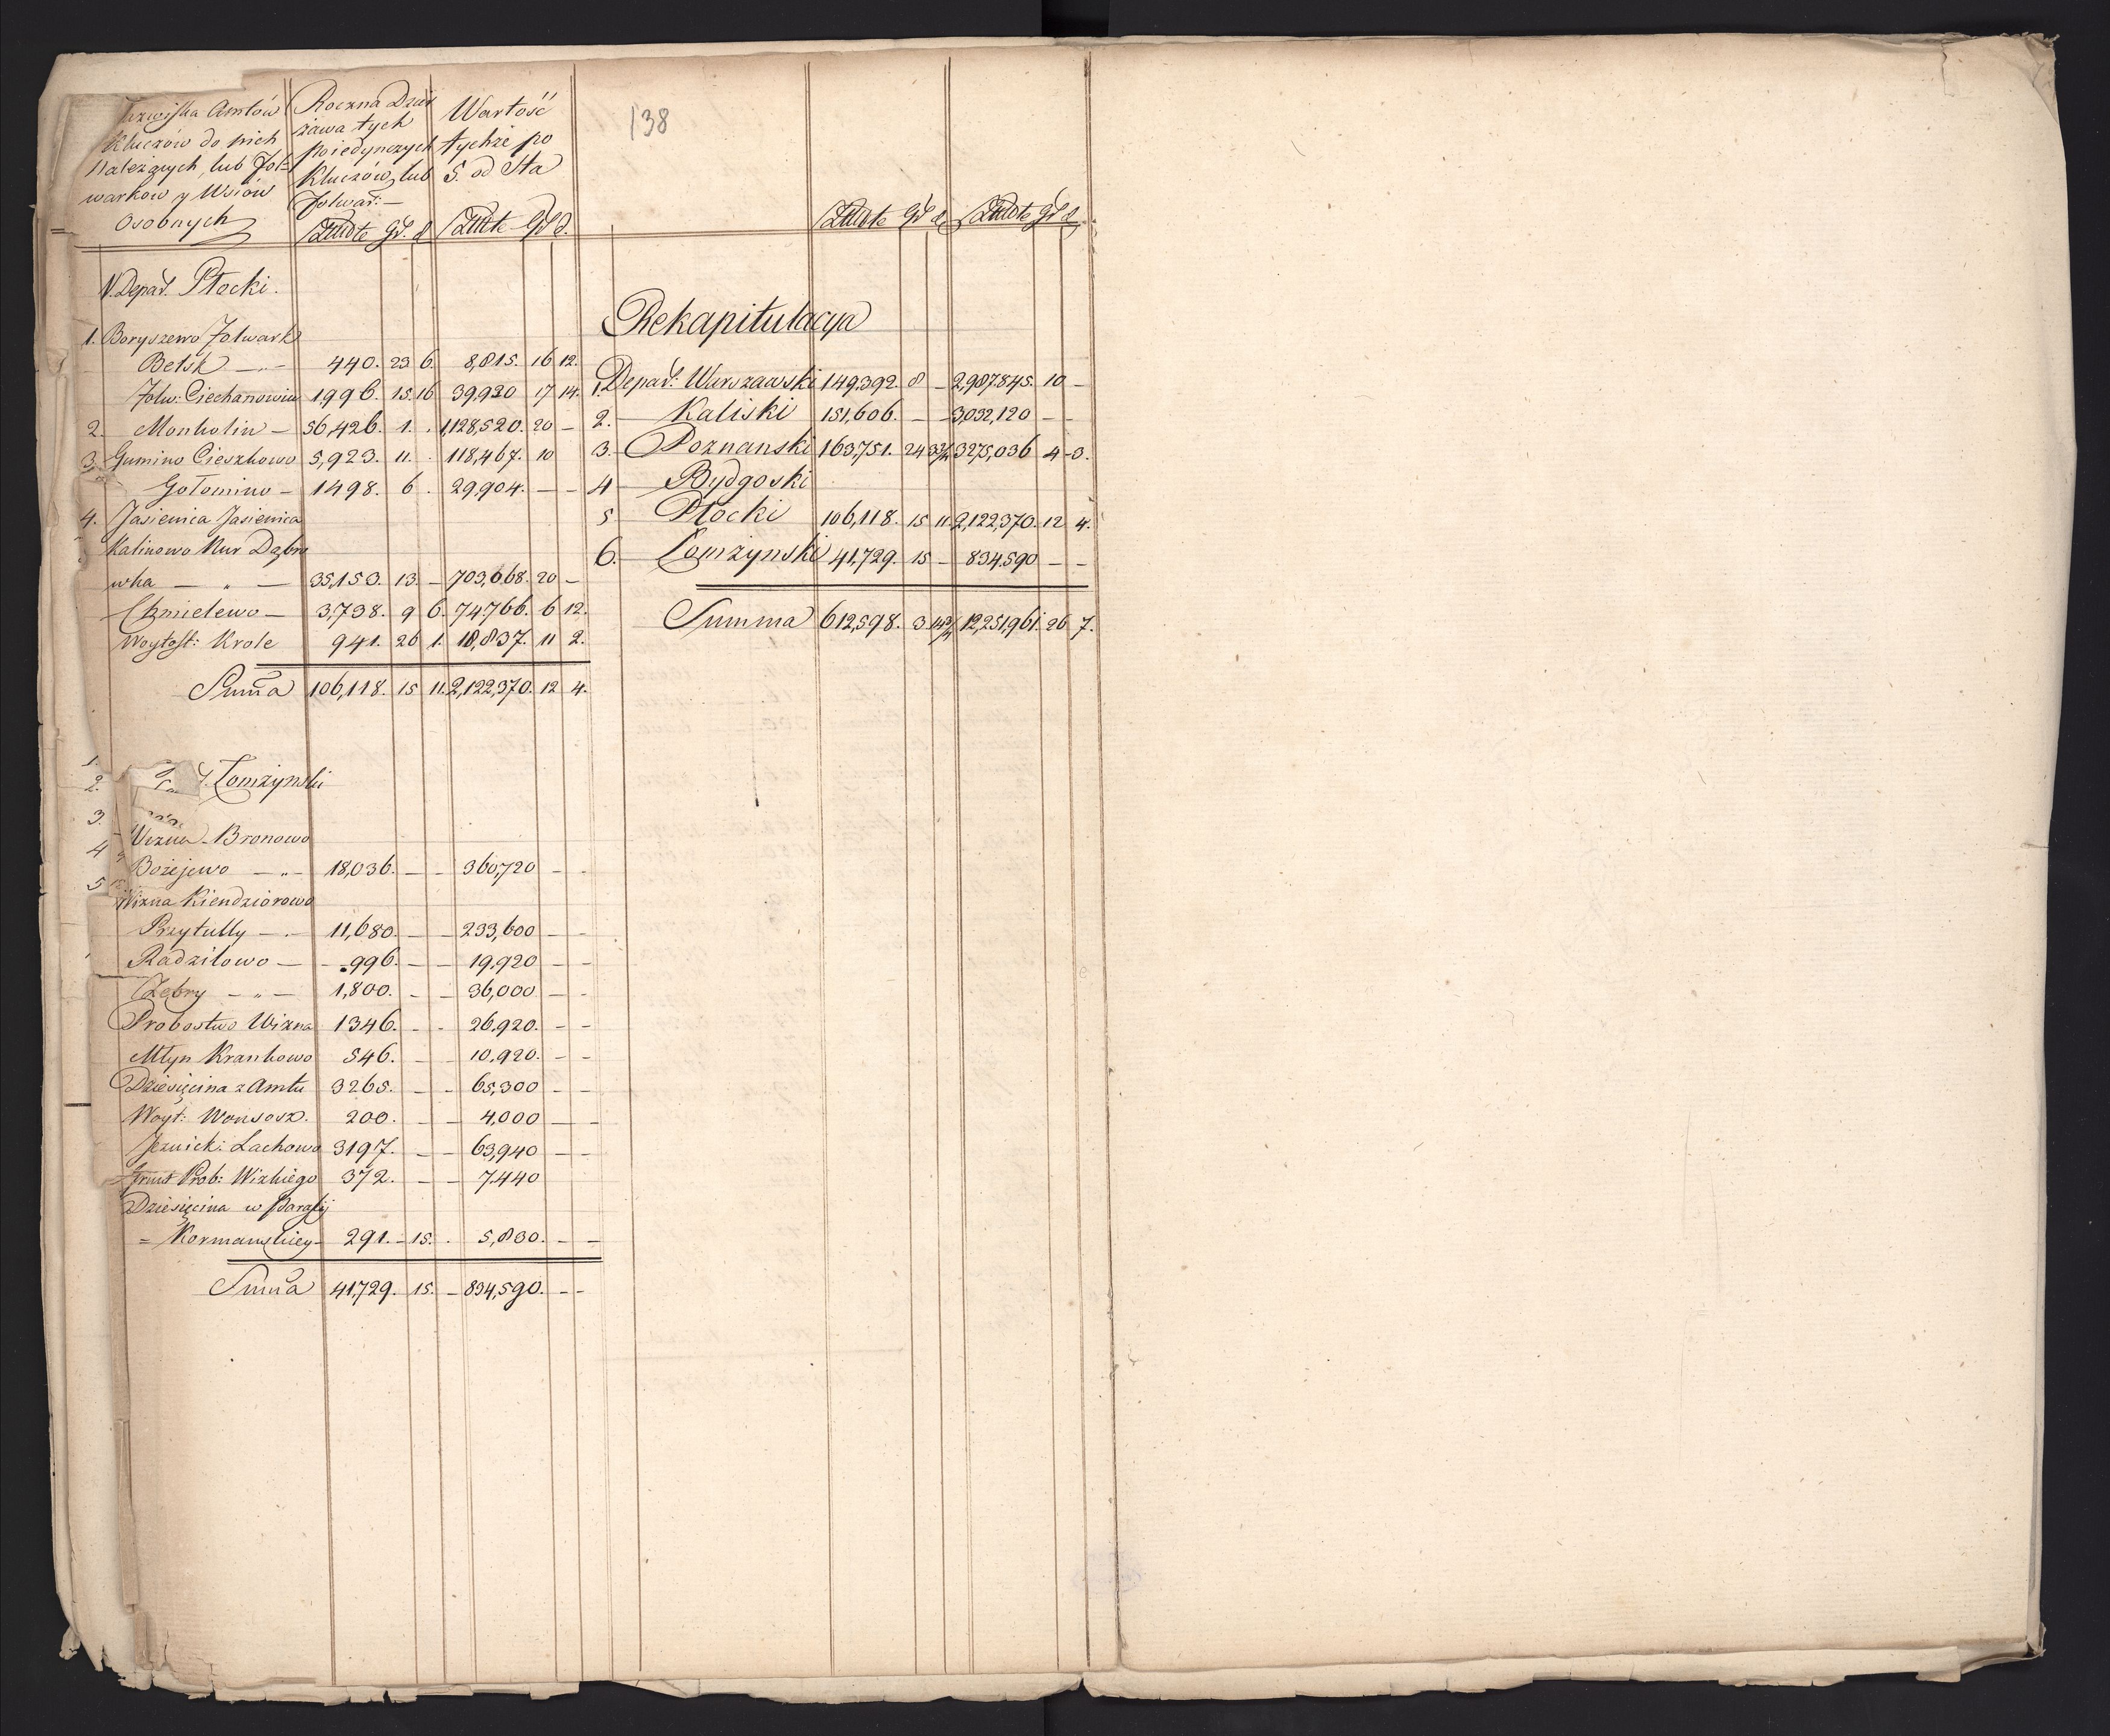 138
Nazwiska Amtów
Kluczów do nich
Należących, lub Fol=
warkow y Wsiów
Osobnych
Roczna Dzier
żawa tych
poiedynczych
Kluczów, lub
Folwar:
Wartość
tychże po
5. od Sta
Złłote Gr. d
Złłte Gr d.
Złłote Gr d
Złłote Gr d
V. Depar. Płocki.
1. Boryszewo Folwark
Belsk — „ — 440. 23 6. 8,815. 16 12.
Folw: Ciechanowiec 1996. 15. 16 39,930 17 14.
2. Monkolin — 56,426. 1. . 1,128,520. 20 —
3. Gumino Cieszkowo 5,923. 11. . 118,467. 10
Gołomino — 1498. 6 . 29,904. — —
4. Jasienica Jasienica
Kalinowo Nur Dąbro
wka — „ — 35,153. 13. — 703,068. 20 —
Chmielewo — 3,738. 9 6. 74,766. 6 12.
Woytost: Krole 941. 26 1. 18,837. 11 2.
Suma 106,118. 15 11. 2,122,370. 12 4.
Łomżynski
1.
2.
3.
4
5
Wizna - Bronowo
Bożejewo — „ — 18,036. — — 360,720 — —
Wizna Kiendziorowo
Przytully — . — 11,680. — — 233,600 — —
Radziłowo — — 996. — — 19,920 — —
Żebry — „ — 1,800. — — 36,000 — —
Probostwo Wizna 1346. — — 26,920. — —
Młyn Krankowo 546. — — 10,920. — —
Dziesięcina z Amtu 3265. — — 65,300 — —
Woyt: Wonsosz. 200. — — 4,000 — —
Jezuick: Lachowo 3197. — — 63,940 — —
Grunt Prob: Wizkiego 372. — — 7,440
Dziesięcina w Parafij
= Kormanskiey — 291. — 15. . 5,830. — —
Suma 41,729. 15. — 834,590. — —
Rekapitulacya
1. Depar: Warszawski 149,392. 8 — 2,987,845. 10 —
2. — Kaliski 151,606. — — 3,032,120 — —
3. — Poznanski 163,751. 24 3275,036 4 — 3.
4 — Bydgoski
5 — Płocki 106,118. 15 11. 2,122,370. 12 4.
6. — Łomżynski 41,729. 15 — 834,590 — —
Summa 612,598. 3 12,251,961. 26 7.